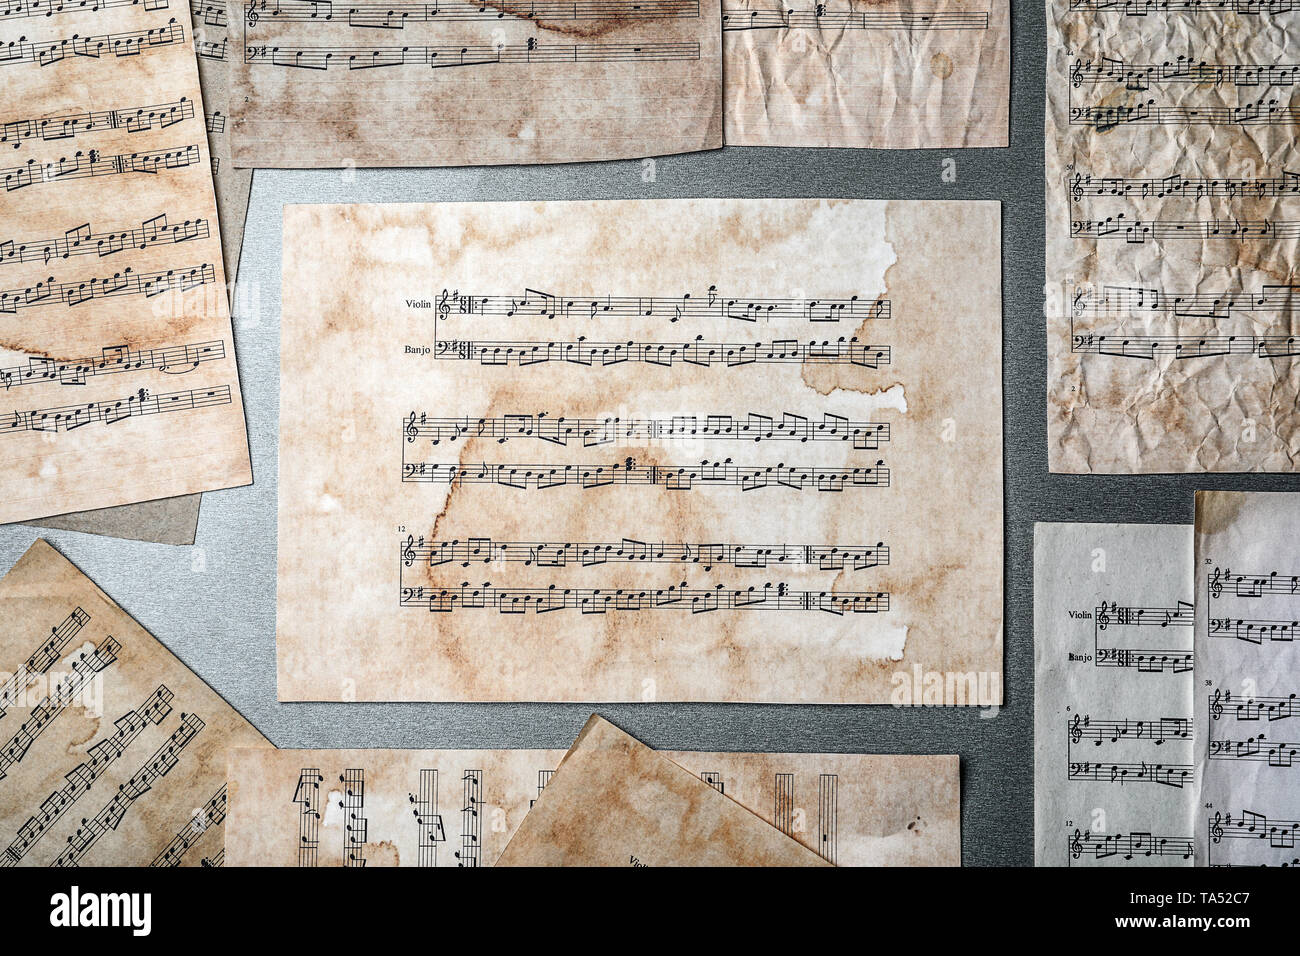 2
Violin
Banjo
12
2
Violin
Banjo
6
12
32
38
44
alamy
Image ID: TA52C7
www.alamy.com